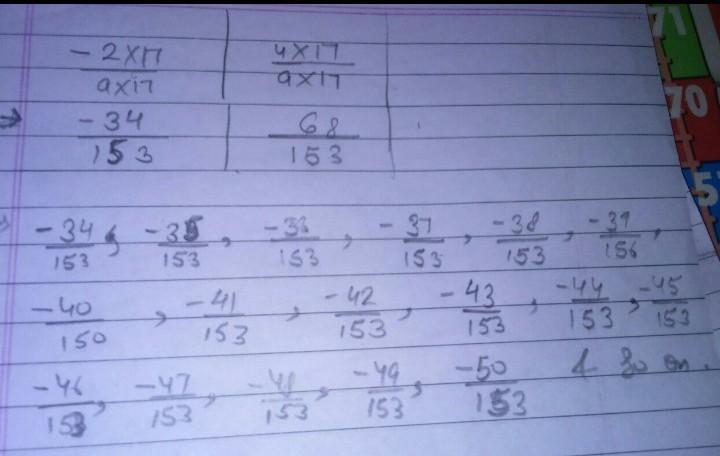 -2×17/9×17 | 4×17/9×17
⇒ -34/153 | 68/153
-34/153, -35/153, -36/153, -37/153, -38/153, -39/156,
-40/150, -41/153, -42/153, -43/153, -44/153, -45/153
-46/153, -47/153, -48/153, -49/153, -50/153 & so on.
71
70